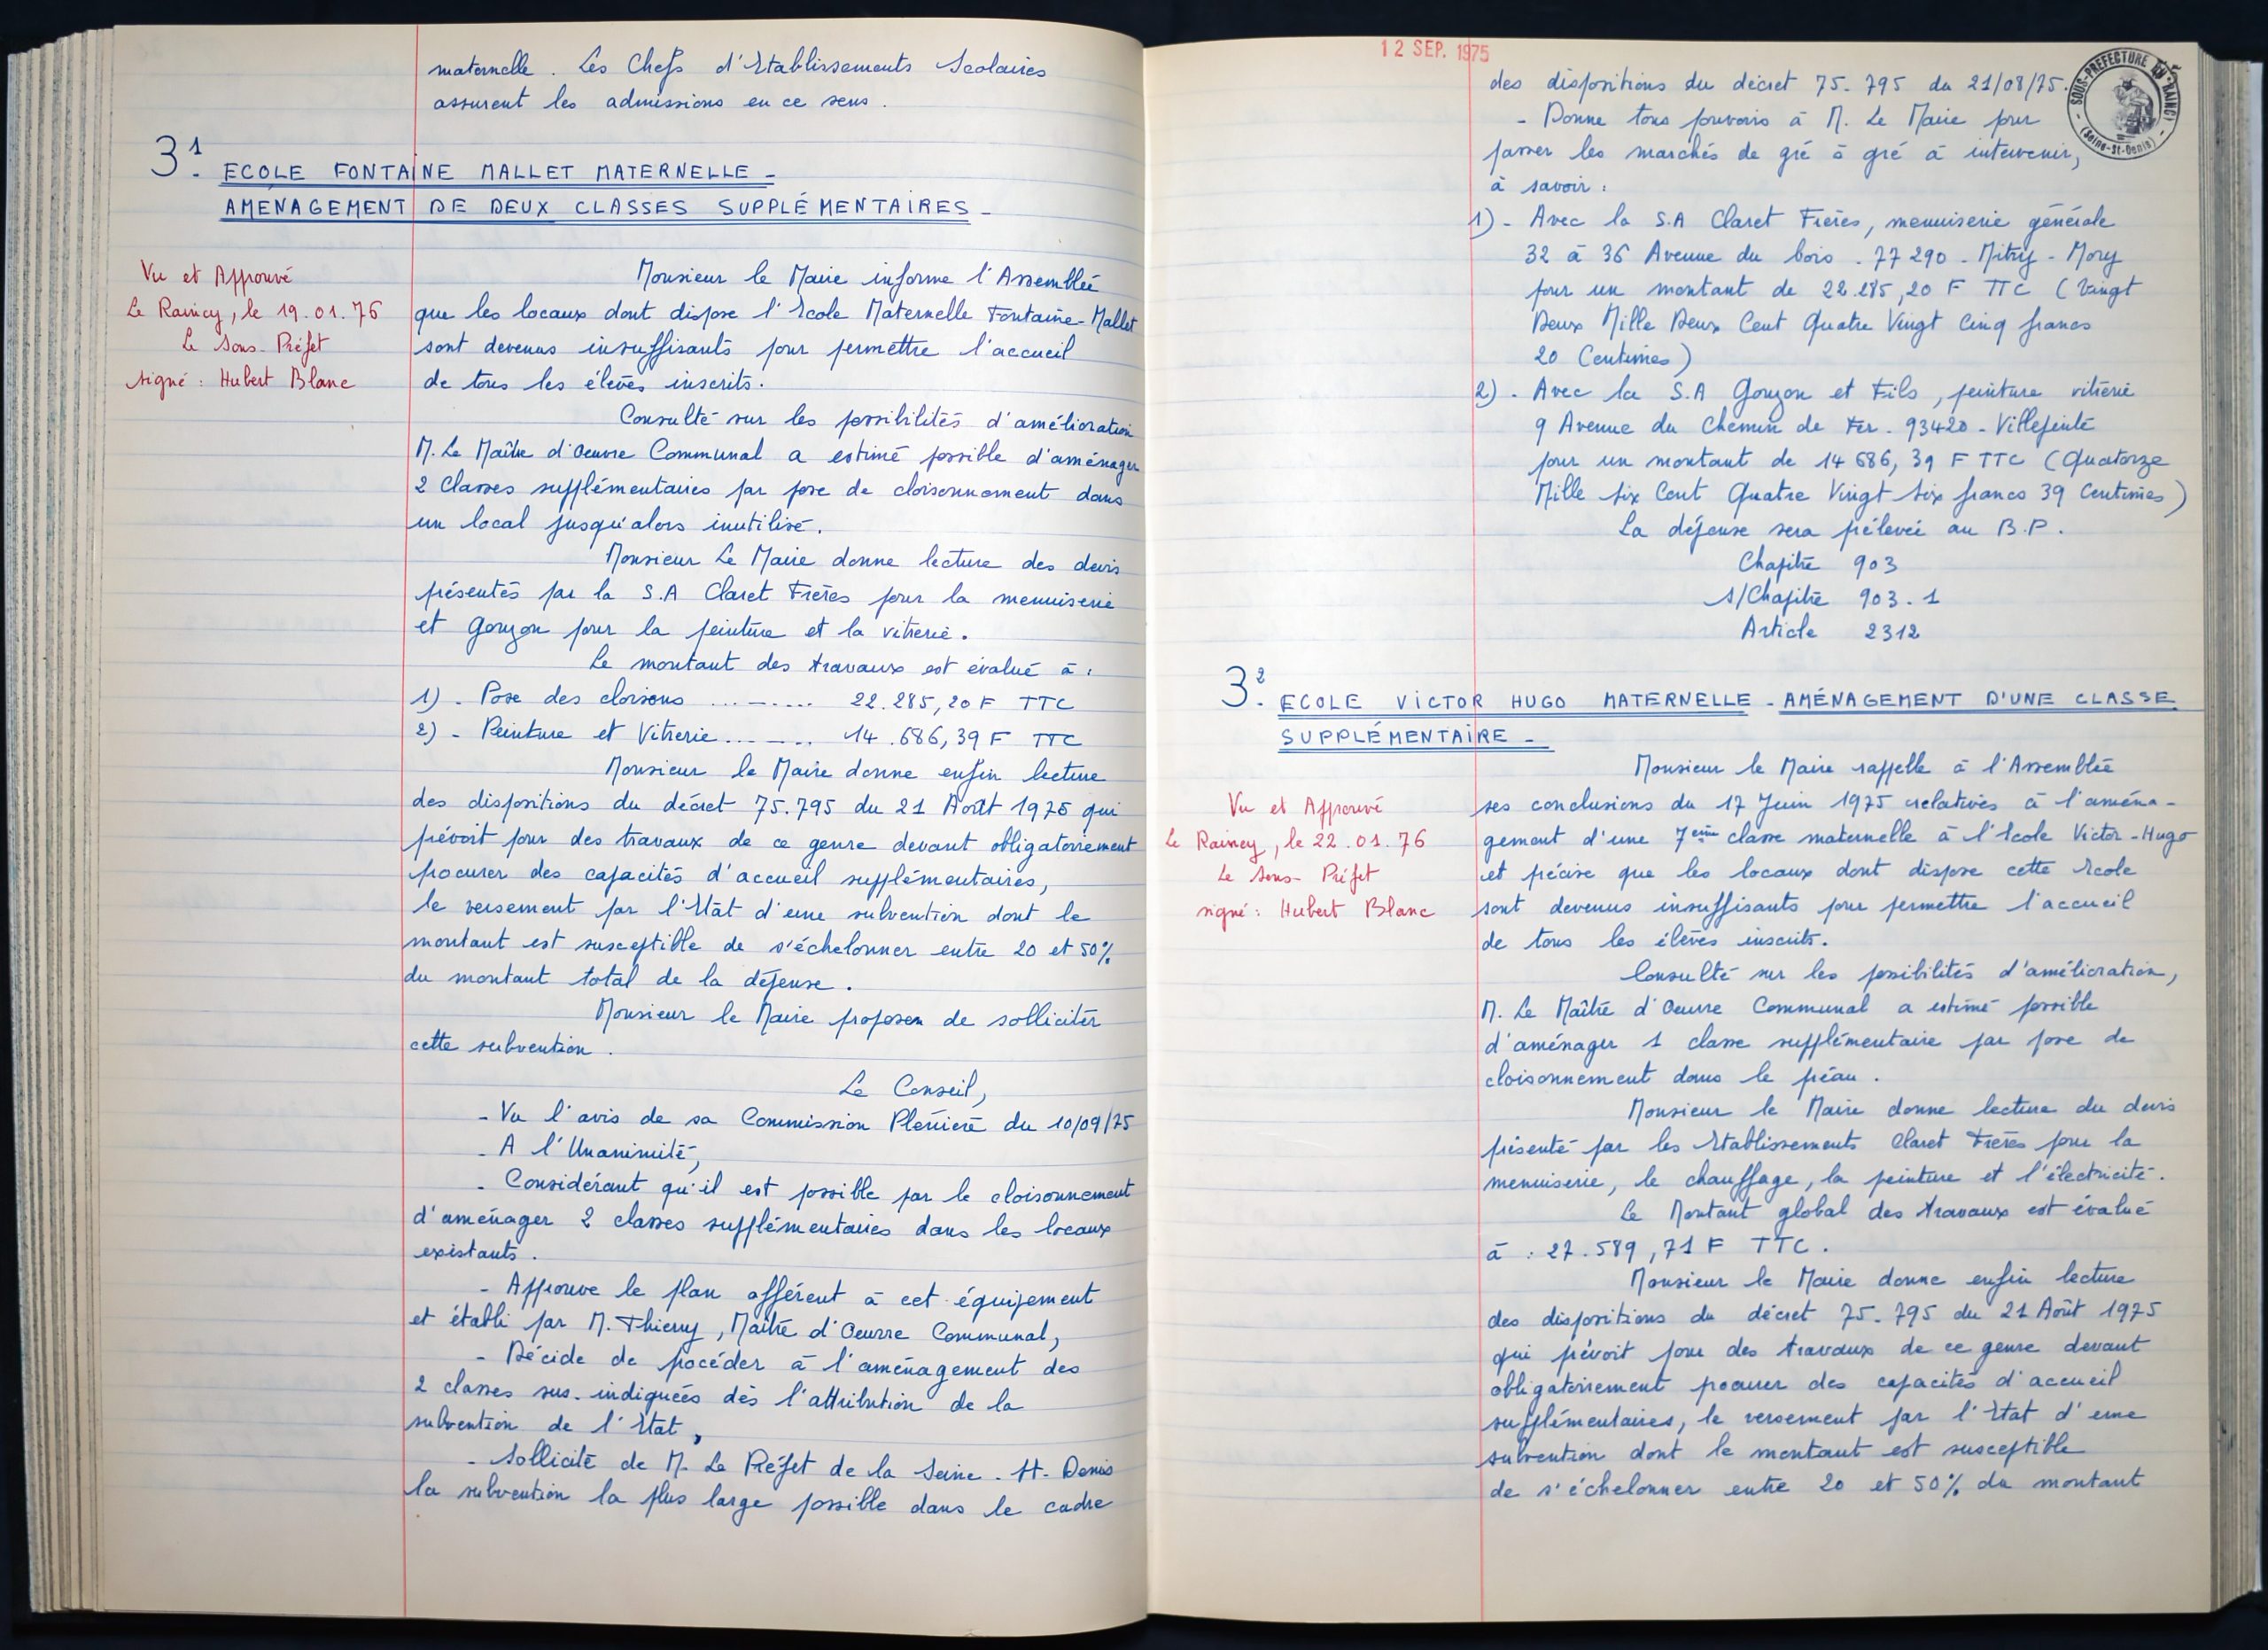 maternelle. Les Chefs d'Etablissements Scolaires
assurent les admissions en ce sens.
3.1 ECOLE FONTAINE MALLET MATERNELLE -
AMENAGEMENT DE DEUX CLASSES SUPPLÉMENTAIRES -
Vu et Approuvé
Le Raincy, le 19.01.76
Le Sous-Préfet
signé : Hubert Blanc
Monsieur le Maire informe l'Assemblée
que les locaux dont dispose l'Ecole Maternelle Fontaine-Mallet
sont devenus insuffisants pour permettre l'accueil
de tous les élèves inscrits.
Consulté sur les possibilités d'amélioration
M. Le Maître d'Oeuvre Communal a estimé possible d'aménager
2 Classes supplémentaires par pose de cloisonnement dans
un local jusqu'alors inutilisé.
Monsieur Le Maire donne lecture des devis
présentés par la S.A Claret Frères pour la menuiserie
et Gouzon pour la peinture et la vitrerie.
Le montant des travaux est évalué à :
1) - Pose des cloisons ... -.... 22.285,20 F TTC
2) - Peinture et Vitrerie... -... 14.686,39 F TTC
Monsieur le Maire donne enfin lecture
des dispositions du décret 75.795 du 21 Août 1975 qui
prévoit pour des travaux de ce genre devant obligatoirement
procurer des capacités d'accueil supplémentaires,
le versement par l'Etat d'une subvention dont le
montant est susceptible de s'échelonner entre 20 et 50%
du montant total de la dépense.
Monsieur le Maire propose de solliciter
cette subvention.
Le Conseil,
- Vu l'avis de sa Commission Plénière du 10/09/75
- A l'Unanimité,
- Considérant qu'il est possible par le cloisonnement
d'aménager 2 classes supplémentaires dans les locaux
existants.
- Approuve le plan afférent à cet équipement
et établi par M. Thierry, Maître d'Oeuvre Communal,
- Décide de procéder à l'aménagement des
2 classes sus-indiquées dès l'attribution de la
subvention de l'Etat,
- Sollicite de M. Le Préfet de la Seine-St-Denis
la subvention la plus large possible dans le cadre
12 SEP. 1975
SOUS-PREFECTURE DU RAINCY
(Seine-St-Denis)
des dispositions du décret 75-795 du 21/08/75.
- Donne tous pouvoirs à M. Le Maire pour
passer les marchés de gré à gré à intervenir,
à savoir :
1) - Avec la S.A Claret Frères, menuiserie générale
32 à 36 Avenue du bois . 77290 - Mitry-Mory
pour un montant de 22.285,20 F TTC (Vingt
Deux Mille Deux Cent Quatre Vingt Cinq francs
20 Centimes)
2) - Avec la S.A Gouzon et Fils, peinture vitrerie
9 Avenue du Chemin de Fer - 93420 - Villepinte
pour un montant de 14 686,39 F TTC (Quatorze
Mille Six Cent Quatre Vingt Six francs 39 Centimes)
La dépense sera prélevée au B.P.
Chapitre 903
S/Chapitre 903.1
Article 2312
3.2 ECOLE VICTOR HUGO MATERNELLE - AMÉNAGEMENT D'UNE CLASSE
SUPPLÉMENTAIRE -
Vu et Approuvé
Le Raincy, le 22.01.76
Le Sous-Préfet
signé : Hubert Blanc
Monsieur le Maire rappelle à l'Assemblée
ses conclusions du 17 Juin 1975 relatives à l'aména-
gement d'une 7ème classe maternelle à l'Ecole Victor-Hugo
et précise que les locaux dont dispose cette Ecole
sont devenus insuffisants pour permettre l'accueil
de tous les élèves inscrits.
Consulté sur les possibilités d'amélioration,
M. Le Maître d'Oeuvre Communal a estimé possible
d'aménager 1 classe supplémentaire par pose de
cloisonnement dans le préau.
Monsieur le Maire donne lecture du devis
présenté par les Etablissements Claret Frères pour la
menuiserie, le chauffage, la peinture et l'électricité.
Le Montant global des travaux est évalué
à : 27.589,71 F TTC.
Monsieur le Maire donne enfin lecture
des dispositions du décret 75-795 du 21 Août 1975
qui prévoit pour des travaux de ce genre devant
obligatoirement procurer des capacités d'accueil
supplémentaires, le versement par l'Etat d'une
subvention dont le montant est susceptible
de s'échelonner entre 20 et 50% du montant